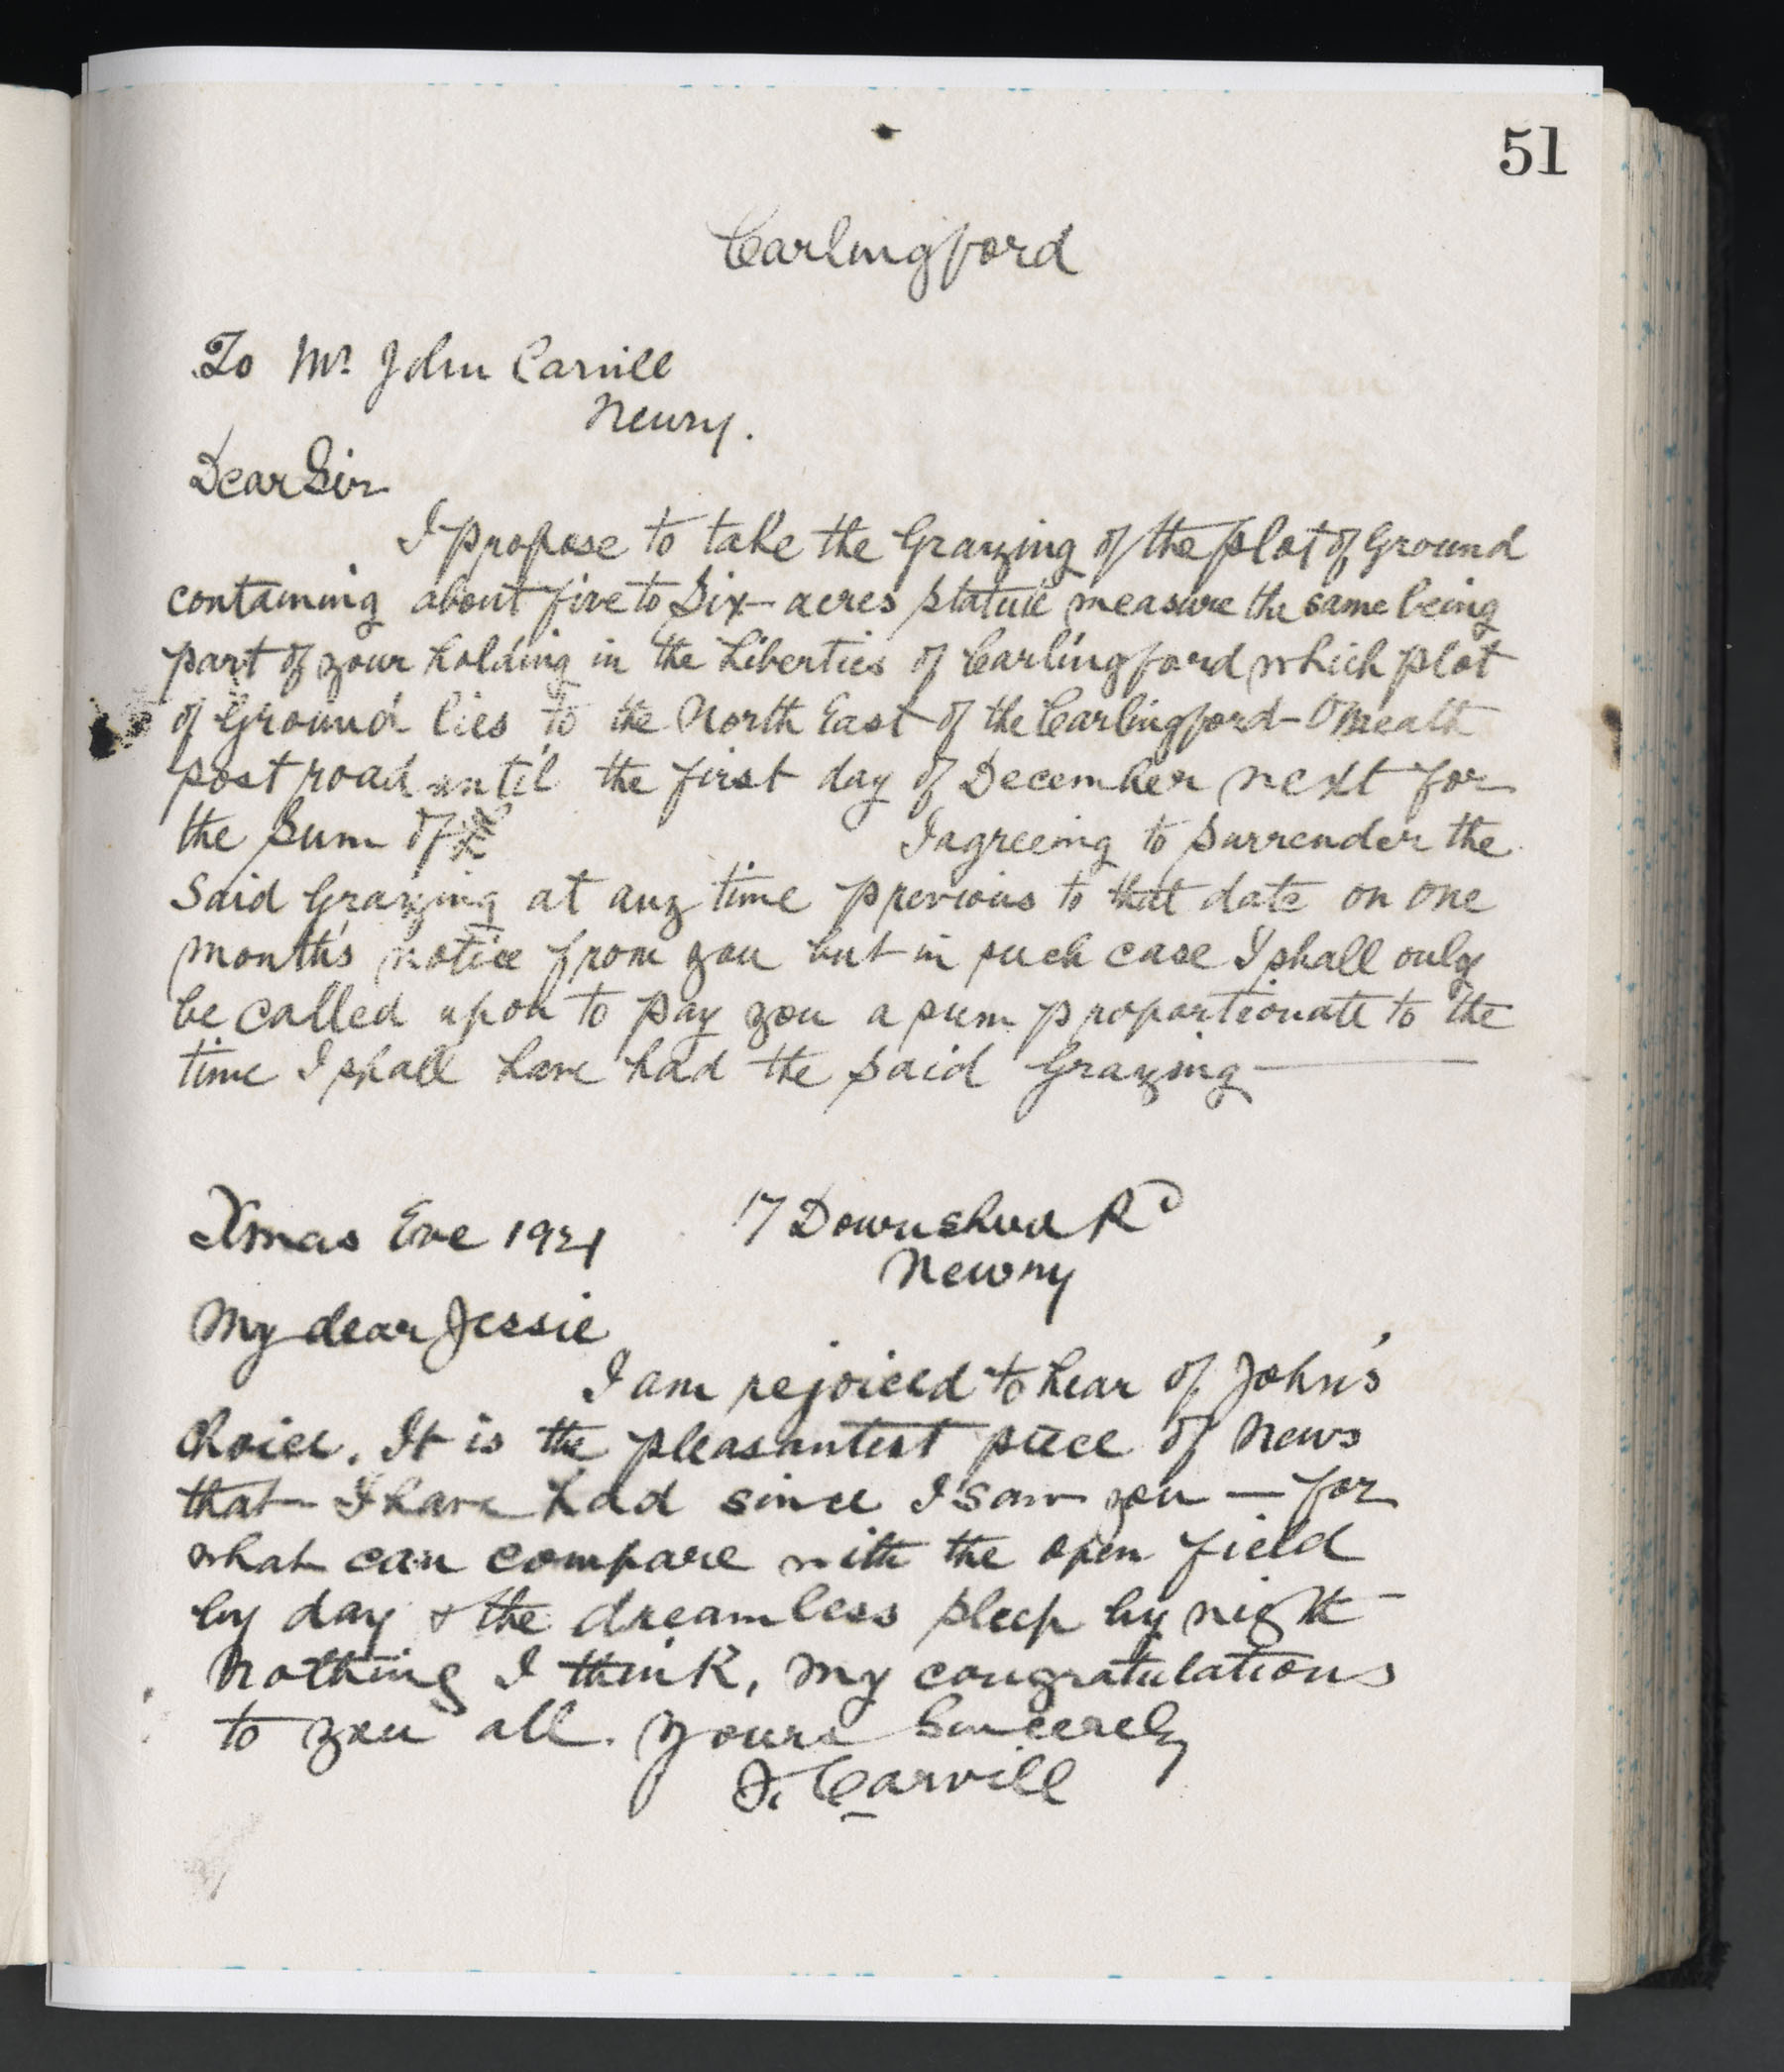 51
Carlingford
To Mr. John Carvill
Newry.
Dear Sir
I propose to take the Grazing of the plot of Ground
containing about five to Six acres statute measure the same being
part of your holding in the Liberties of Carlingford which plot
of Ground lies to the North East of the Carlingford-Omeath
post road until the first day of December next for
the sum of £ I agreeing to surrender the
Said Grazing at any time previous to that date on one
month's notice from you but in such case I shall only
be called upon to pay you a sum proportionate to the
time I shall have had the said Grazing
Xmas Eve 1921 17 Downshire Rd
Newry
My dear Jessie
I am rejoiced to hear of John's
Choice. It is the pleasantest piece of News
that I have had since I saw you — for
what can compare with the open field
by day & the dreamless sleep by night -
Nothing I think, my congratulations
to you all. Yours Sincerely
J. Carvill